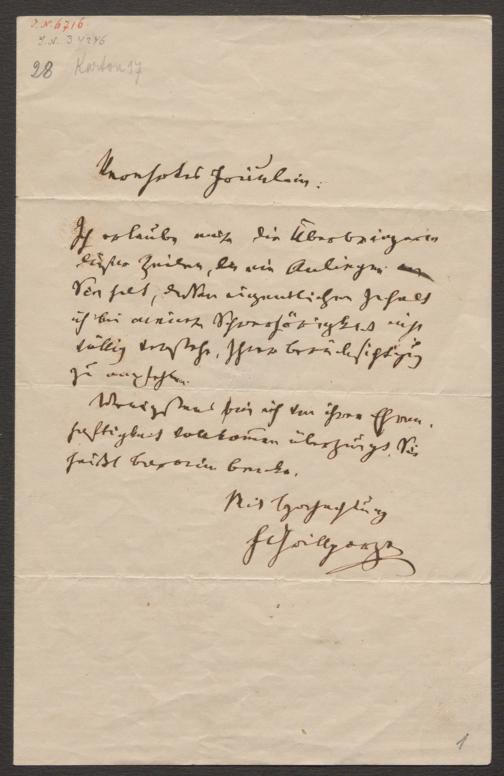 I.N. 6716
I.N. 34246
28 Karton 17
Verehrtes Fräulein!
Ich erlaube mir die Überbringerin
dieser Zeilen, die ein Anliegen an
Sie hat, dessen eigentlichen Gehalt
ich bei meiner Schwerhörigkeit nicht
völlig verstehe, Ihrer Berücksichtigung
zu empfehlen.
Wenigstens bin ich von ihrer Ehren-
haftigkeit vollkommen überzeugt. Sie
heißt
Mit Hochachtung
Grillparzer
1